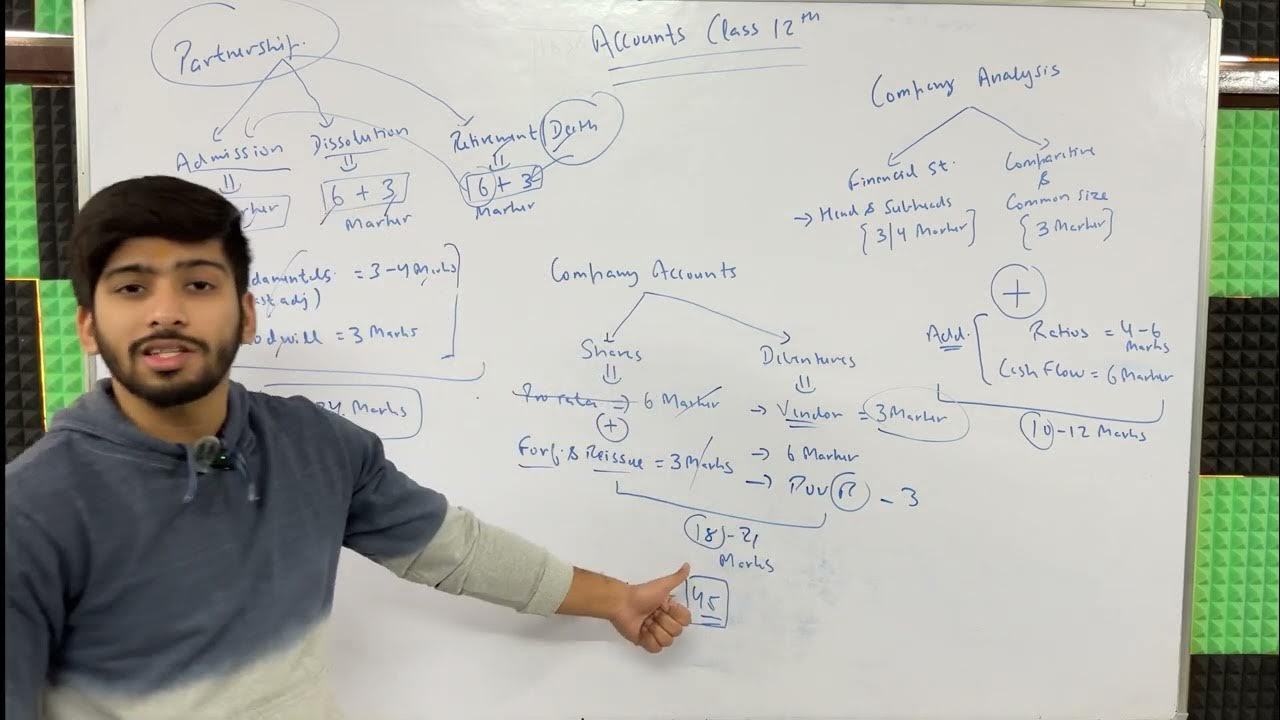 Accounts Class 12th
Partnership.
Admission
Dissolution
6 + 3
Marker
Retirement Death
6 + 3
Marker
= 3-4 Marks
= 3 Marks
Marks
Company Accounts
Shares
Pro rata → 6 Marker
+
Forf. & Reissue = 3 Marks
Debentures
→ Vendor = 3 Marker
→ 6 Marker
- 3
18 - 21
Marks
45
Company Analysis
Financial St.
→ Head & Subheads
{3/4 Marker}
Comparitive
&
Common size
{3 Marker}
+
Add.
Ratios = 4-6
Marks
Cash Flow = 6 Marker
10-12 Marks